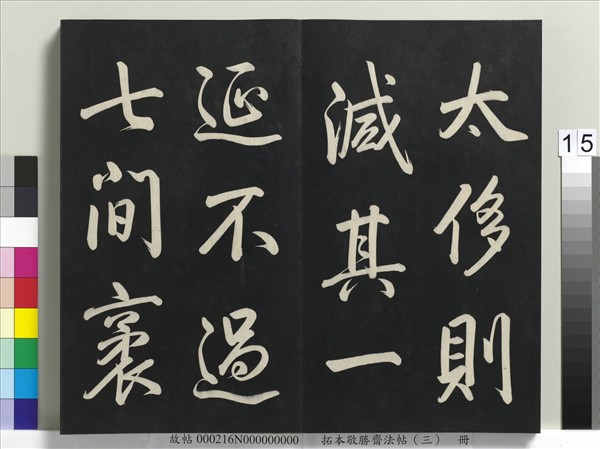 太侈則
減其一
延不過
七間袤
故帖 000216N000000000 拓本敬勝齋法帖(三) 冊
15